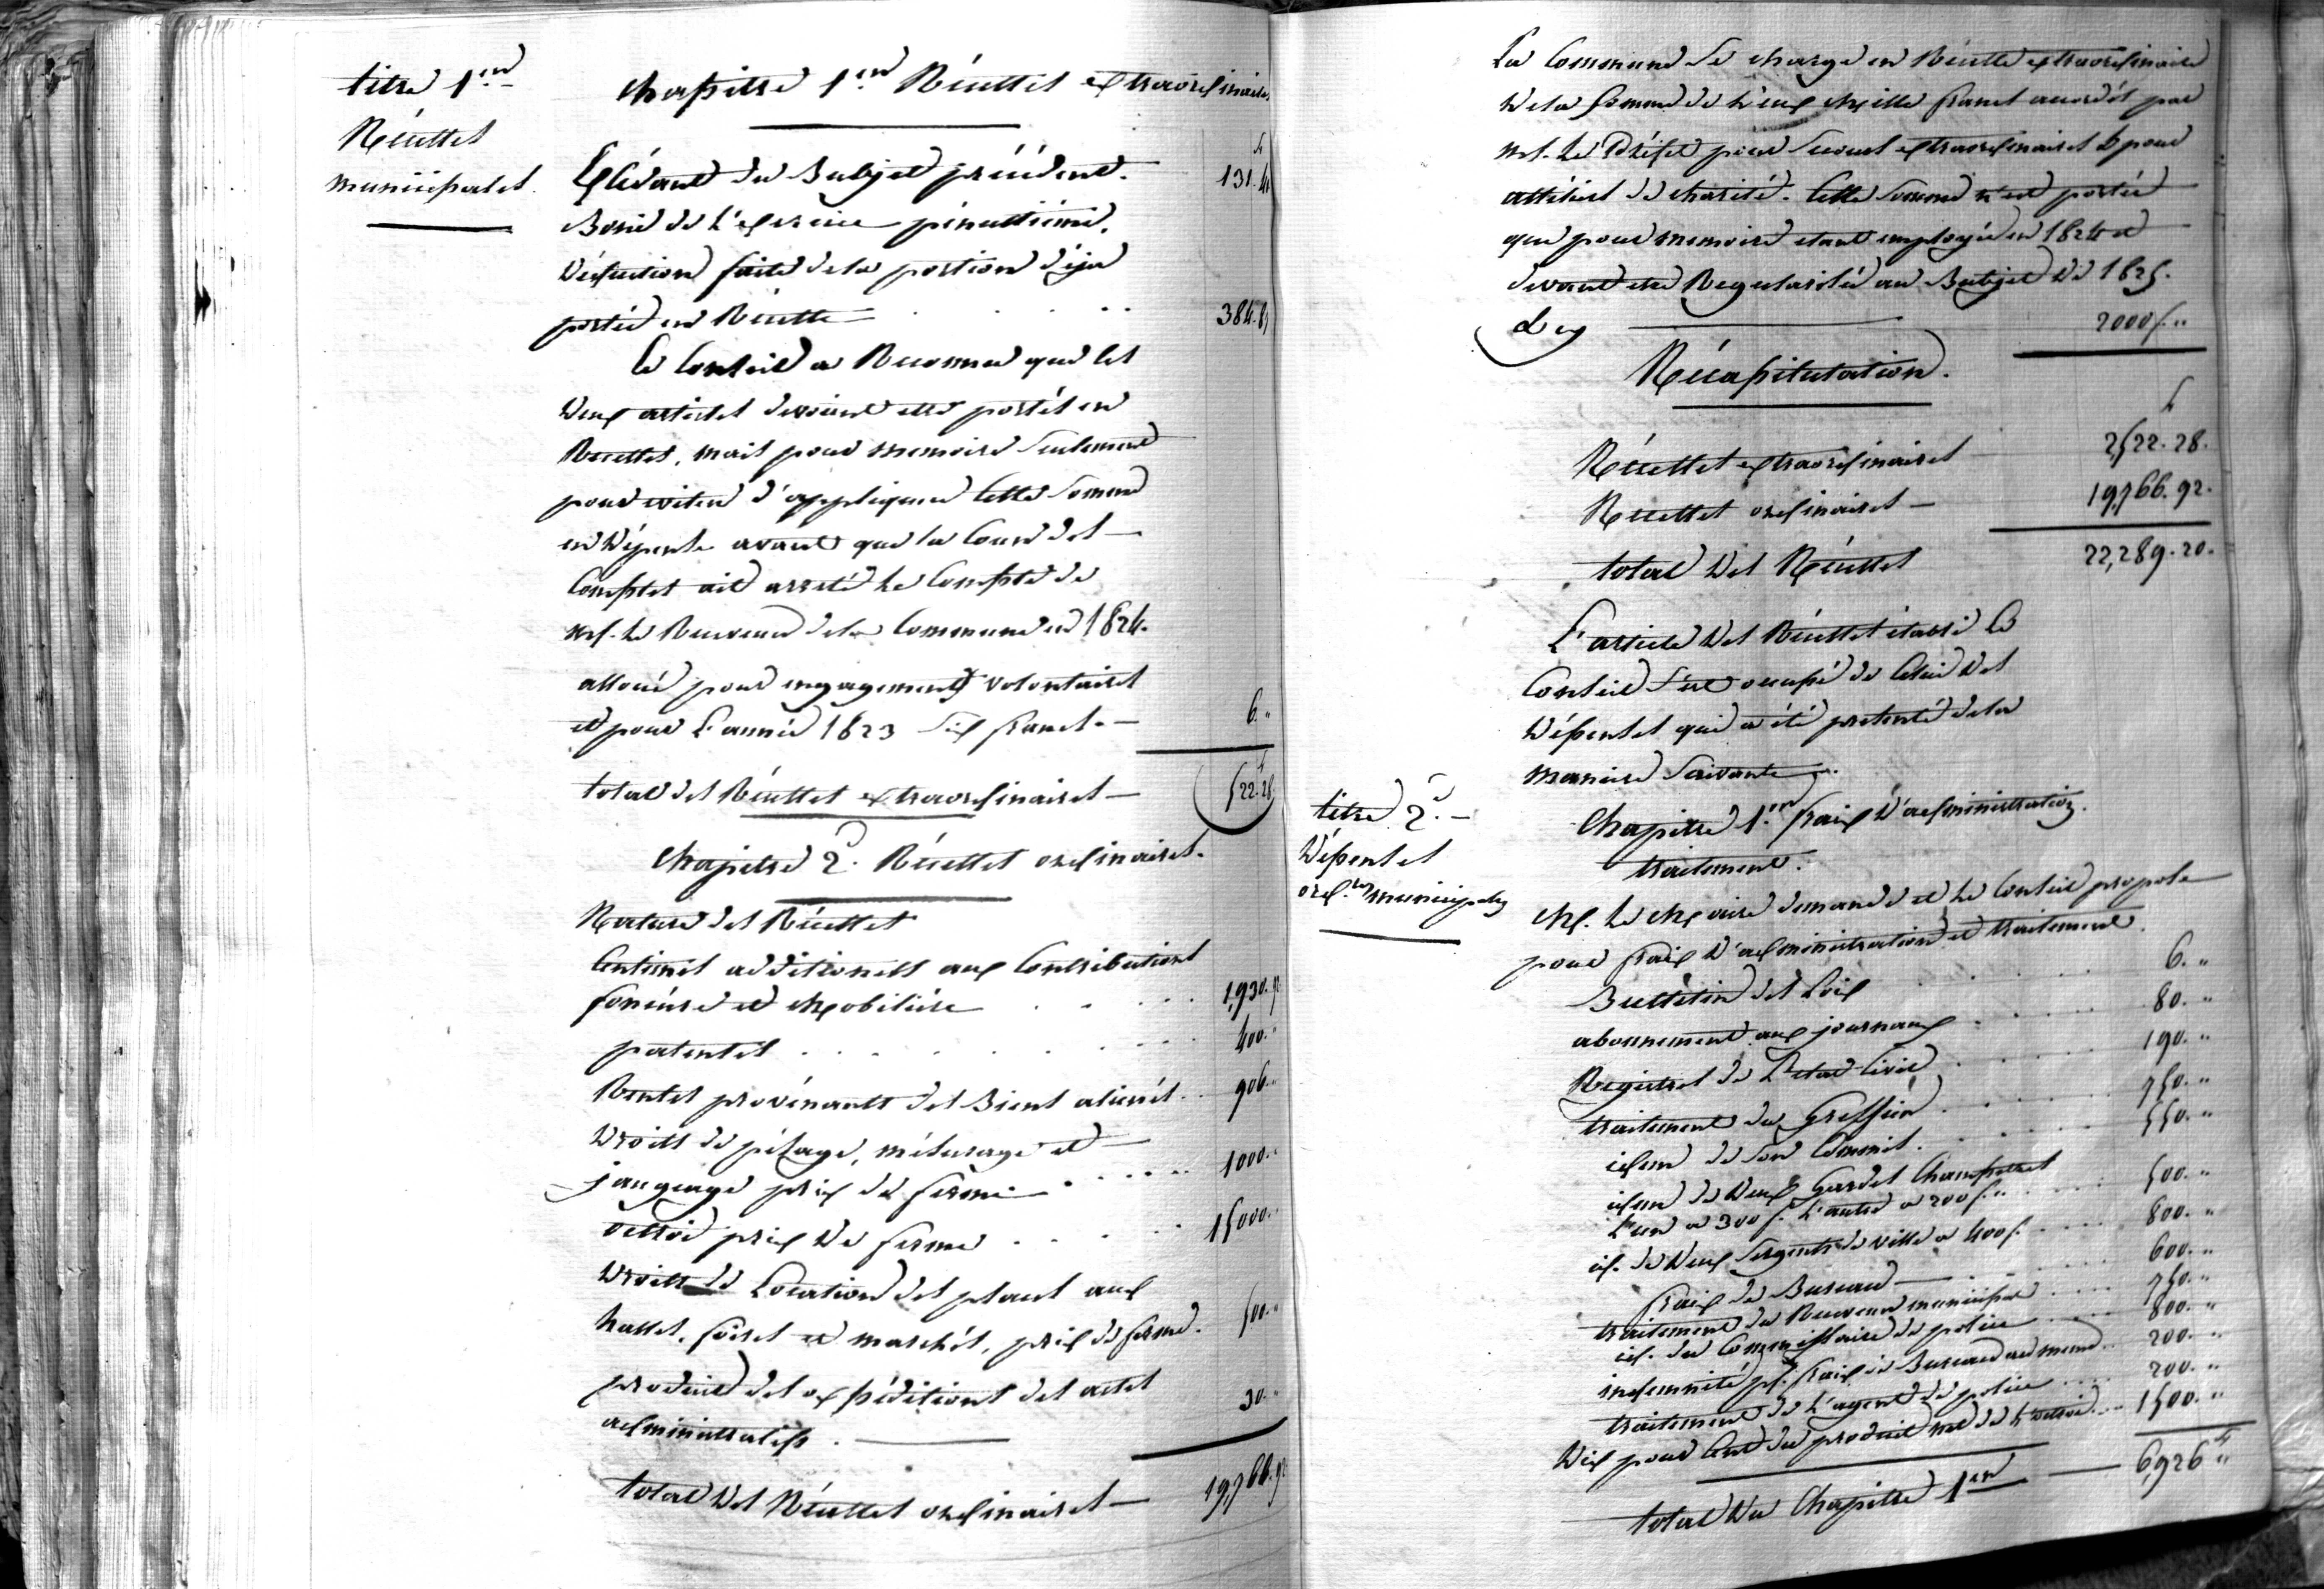 titre 1.er
Récettes
municipales.
chapitre 1.er Récettes extraordinaires
Exédant du Budjet précédent. 131.41
Boni de l'exercice pénultiéme,
déduction faite de la portion déja
portée en Récette . . . . 384.87
Le Conseil a Reconnu que les
deux articles devoient etre portés en
Recettes, mais pour memoire seulement
pour eviter d'appliquer cette somme
en dépense avant que la Cour des
Comptes ait arreté le Compte de
mr. le Receveur de la Commune en 1824.
alloué pour engagements volontaires
et pour l'année 1823 six francs. 6. "
total des Récettes extraordinaires 522.28
chapitre 2.e Récettes ordinaires.
Nature des Récettes
Centimes additionels aux Contributions
fonciére et Mobiliére . . . . 1,930.92
patentes . . . . 400. "
Rentes provénants des Biens aliénés. 906. "
droits de pésage, mésurage et
jaugeage prix de ferme . . . . 1000. "
octroi prix de ferme . . . . 15000. "
droits de Location des places aux
halles, foires et marchés, prix de ferme. 500. "
produit des expéditions des actes
administratifs . 30. "
total des Récettes ordinaires 19,766.92
La Commune se charge en Récette extraordinaire
de la somme de deux Mille francs accordés par
mr. le Préfet pour secours extraordinaires & pour
atteliers de charité. Cette somme n'est portée
que pour memoire etant employée en 1824 et
devant etre Regularisée au Budjet de 1825.
Cy 2000f. "
Récapitulation.
Récettes extraordinaires 2,522.28.
Recettes ordinaires 19,766.92.
total des Récettes 22,289.20.
L'article des Récettes etabli le
Conseil s'est occupé de celui des
dépenses qui a été presenté de la
maniere suivante.
titre 2.e
dépenses
ord.res municipales
Chapitre 1.er fraix d'administration.
traitement.
M. le Maire demande et le Conseil propose
pour fraix d'administration et traitement.
Bulletin des Loix . . . . 6. "
abonnement aux journaux . . . . 80. "
Registres de l'etat Civil . . . . 190. "
traitement du Greffier . . . . 750. "
idem de son Commis. . . . . 550. "
idem de deux Gardes Champetres
l'un a 300f. l'autre a 200f. " . . . . 500. "
id. de deux sergents de ville a 400f. . . . . 800. "
fraix de Bureau . . . . 600. "
traitement du Receveur municipal . . . . 750. "
id. du Commissaire de police . . . . 800. "
indemnité pr. fraix de Bureau au meme . . 200. "
traitement de l'agent de police . . . . 200. "
dix pour Cent du produit net de l'octroi . . . 1500. "
total du Chapitre 1.er 6,926 "